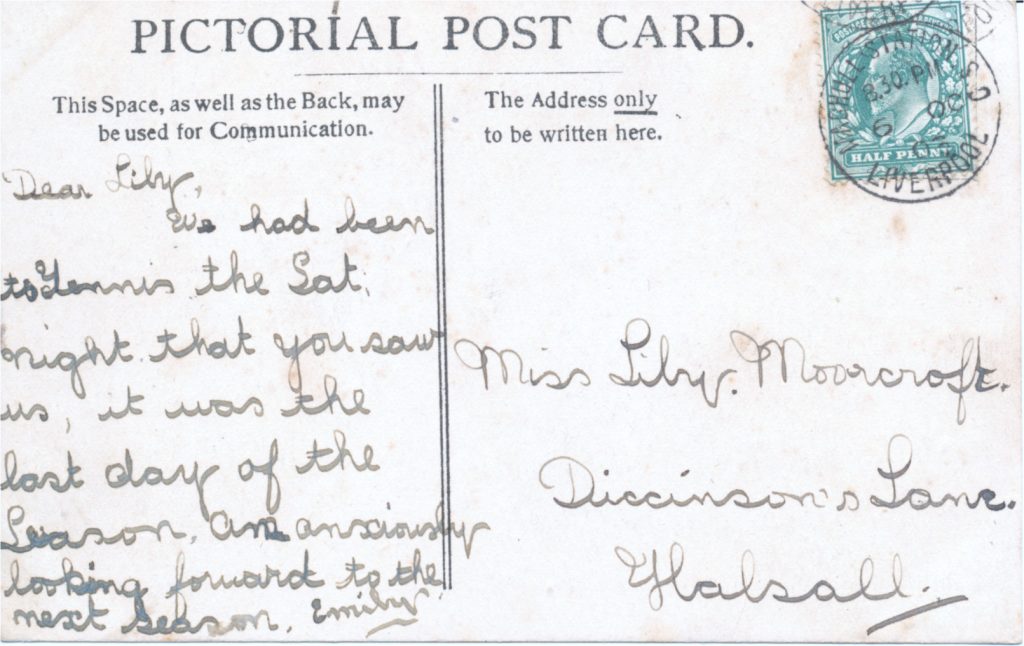 PICTORIAL POST CARD.
This Space, as well as the Back, may
be used for Communication.
The Address only
to be written here.
HALF PENNY
8.30 PM
6
OC
LIVERPOOL
Dear Lily,
We had been
to Tennis the Sat.
night that you saw
us, it was the
last day of the
Season. Am anxiously
looking forward to the
next season. Emily
Miss Lily. Moorcroft.
Diccinson's Lane.
Halsall.